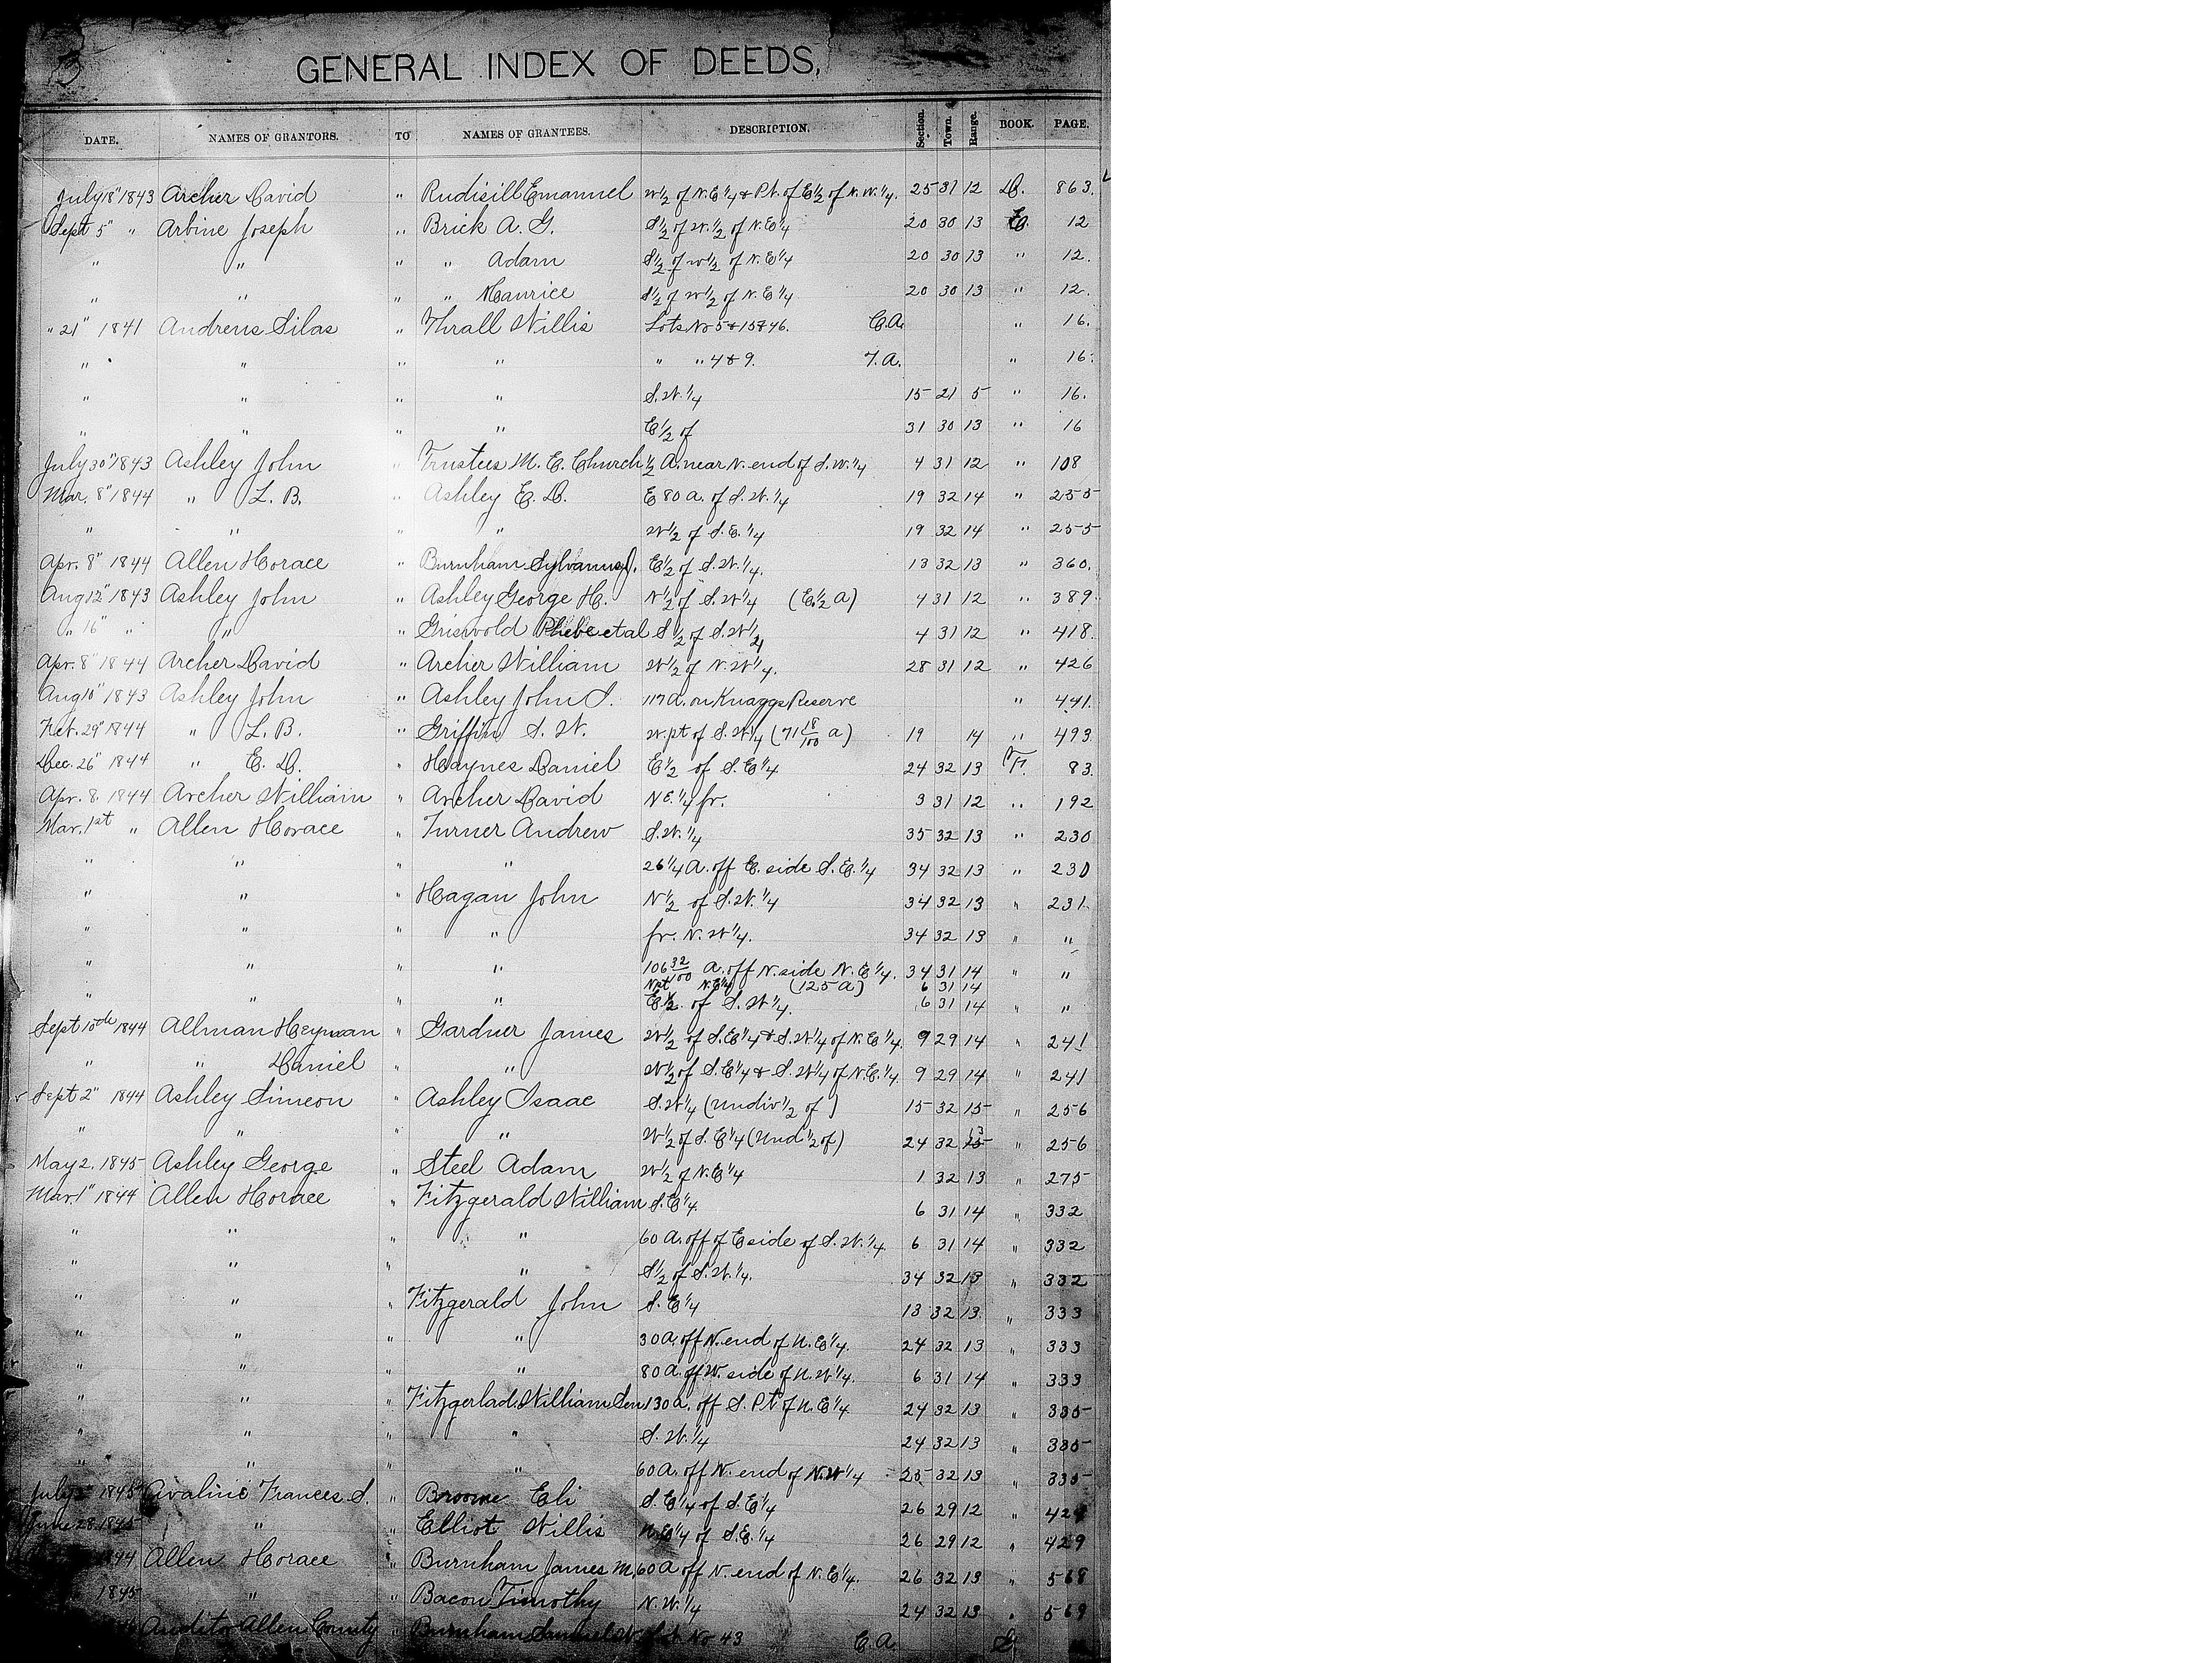 3
GENERAL INDEX OF DEEDS,
DATE. NAMES OF GRANTORS. TO NAMES OF GRANTEES. DESCRIPTION. Section. Town. Range. BOOK. PAGE.
July 18" 1843 Archer David " Rudisill Emanuel W 1/2 of N.E 1/4 & Pt. of E 1/2 of N.W. 1/4. 25 31 12 D. 863.
Sept 5 " Arbine Joseph " Brick A. G. S 1/2 of W. 1/2 of N.E 1/4 20 30 13 E. 12
" " " " Adam S 1/2 of W 1/2 of N.E 1/4 20 30 13 " 12.
" " " " Maurice S 1/2 of W 1/2 of N.E 1/4 20 30 13 " 12.
" 21" 1841 Andrews Silas " Thrall Willis Lots No 5 & 15 & 46. C.A. " 16.
" " " " " " 4 & 9. T.A. " 16.
" " " " S.W. 1/4 15 21 5 " 16.
" " " " E 1/2 of 31 30 13 " 16
July 30" 1843 Ashley John " Trustees M. E. Church 1/2 A. near N. end of S.W. 1/4 4 31 12 " 108
Mar. 8" 1844 " L. B. " Ashley E. D. E 80 a. of S.W. 1/4 19 32 14 " 255
" " " " W 1/2 of S.E. 1/4 19 32 14 " 255
Apr. 8" 1844 Allen Horace " Burnham Sylvanus J. E 1/2 of S.W. 1/4. 13 32 13 " 360.
Aug 12" 1843 Ashley John " Ashley George H. N 1/2 of S.W 1/4 (E. 1/2 a) 4 31 12 " 389.
" 16" " " " Griswold Phebe et al S 1/2 of S.W 1/4 4 31 12 " 418.
Apr. 8" 1844 Archer David " Archer William W 1/2 of N.W 1/4. 28 31 12 " 426
Aug 10" 1843 Ashley John " Ashley John S. 117 A. on Knaggs Reserve " 441.
Feb. 29" 1844 " L. B. " Griffin S. W. W. pt of S.W 1/4 (71 18/100 a) 19 14 " 493
Dec. 26" 1844 " E. D. " Haynes Daniel E 1/2 of S.E 1/4 24 32 13 F. 83.
Apr. 8. 1844 Archer William " Archer David N E. 1/4 fr. 3 31 12 " 192
Mar. 1st " Allen Horace " Turner Andrew S.W. 1/4 35 32 13 " 230
" " " " 26 1/4 A. off E. side S.E. 1/4 34 32 13 " 230
" " " Hagan John N 1/2 of S.W. 1/4 34 32 13 " 231.
" " " " fr. N.W 1/4. 34 32 13 " "
" " " " 106 32/100 a. off N. side N.E 1/4. 34 31 14 " "
N pt N.E 1/4 (125 a) 6 31 14
" " " " E. 1/2 of S.W 1/4. 6 31 14 " "
Sept 10th 1844 Allman Heyman " Gardner James W 1/2 of S.E 1/4 & S.W 1/4 of N.E 1/4. 9 29 14 " 241
" " Daniel " " W 1/2 of S.E 1/4 & S.W 1/4 of N.E. 1/4. 9 29 14 " 241
Sept 2" 1844 Ashley Simeon " Ashley Isaac S.W 1/4 (Undiv 1/2 of) 15 32 15 " 256
" " " " W 1/2 of S.E 1/4 (Und 1/2 of) 24 32 13 " 256
May 2. 1845 Ashley George " Steel Adam W 1/2 of N.E 1/4 1 32 13 " 275
Mar. 1" 1844 Allen Horace " Fitzgerald William S.E 1/4. 6 31 14 " 332
" " " " 60 A. off of E side of S.W. 1/4. 6 31 14 " 332
" " " " S 1/2 of S.W. 1/4. 34 32 13 " 332
" " " Fitzgerald John S.E 1/4 13 32 13 " 333
" " " " 30 A. off N. end of N.E 1/4. 24 32 13 " 333
" " " " 80 A. off W. side of N.W 1/4. 6 31 14 " 333
" " " Fitzgerlad William Sen 130 a. off S. Pt of N.E 1/4 24 32 13 " 335
" " " " S.W. 1/4 24 32 13 " 335
" " " " 60 A. off N. end of N.W 1/4 25 32 13 " 335
July 1845 Avaline Frances S. " Broome Eli S.E 1/4 of S.E 1/4 26 29 12 "
June 28. 1845 " " Elliot Willis N.E 1/4 of S.E. 1/4 26 29 12 " 429
Allen Horace " Burnham James M. 60 A off N. end of N.E 1/4. 26 32 13 " 568
1845 " " Bacon Timothy N.W. 1/4 24 32 13 " 569
Auditor Allen County " Burnham Samuel W. Lot No 43 C.A.